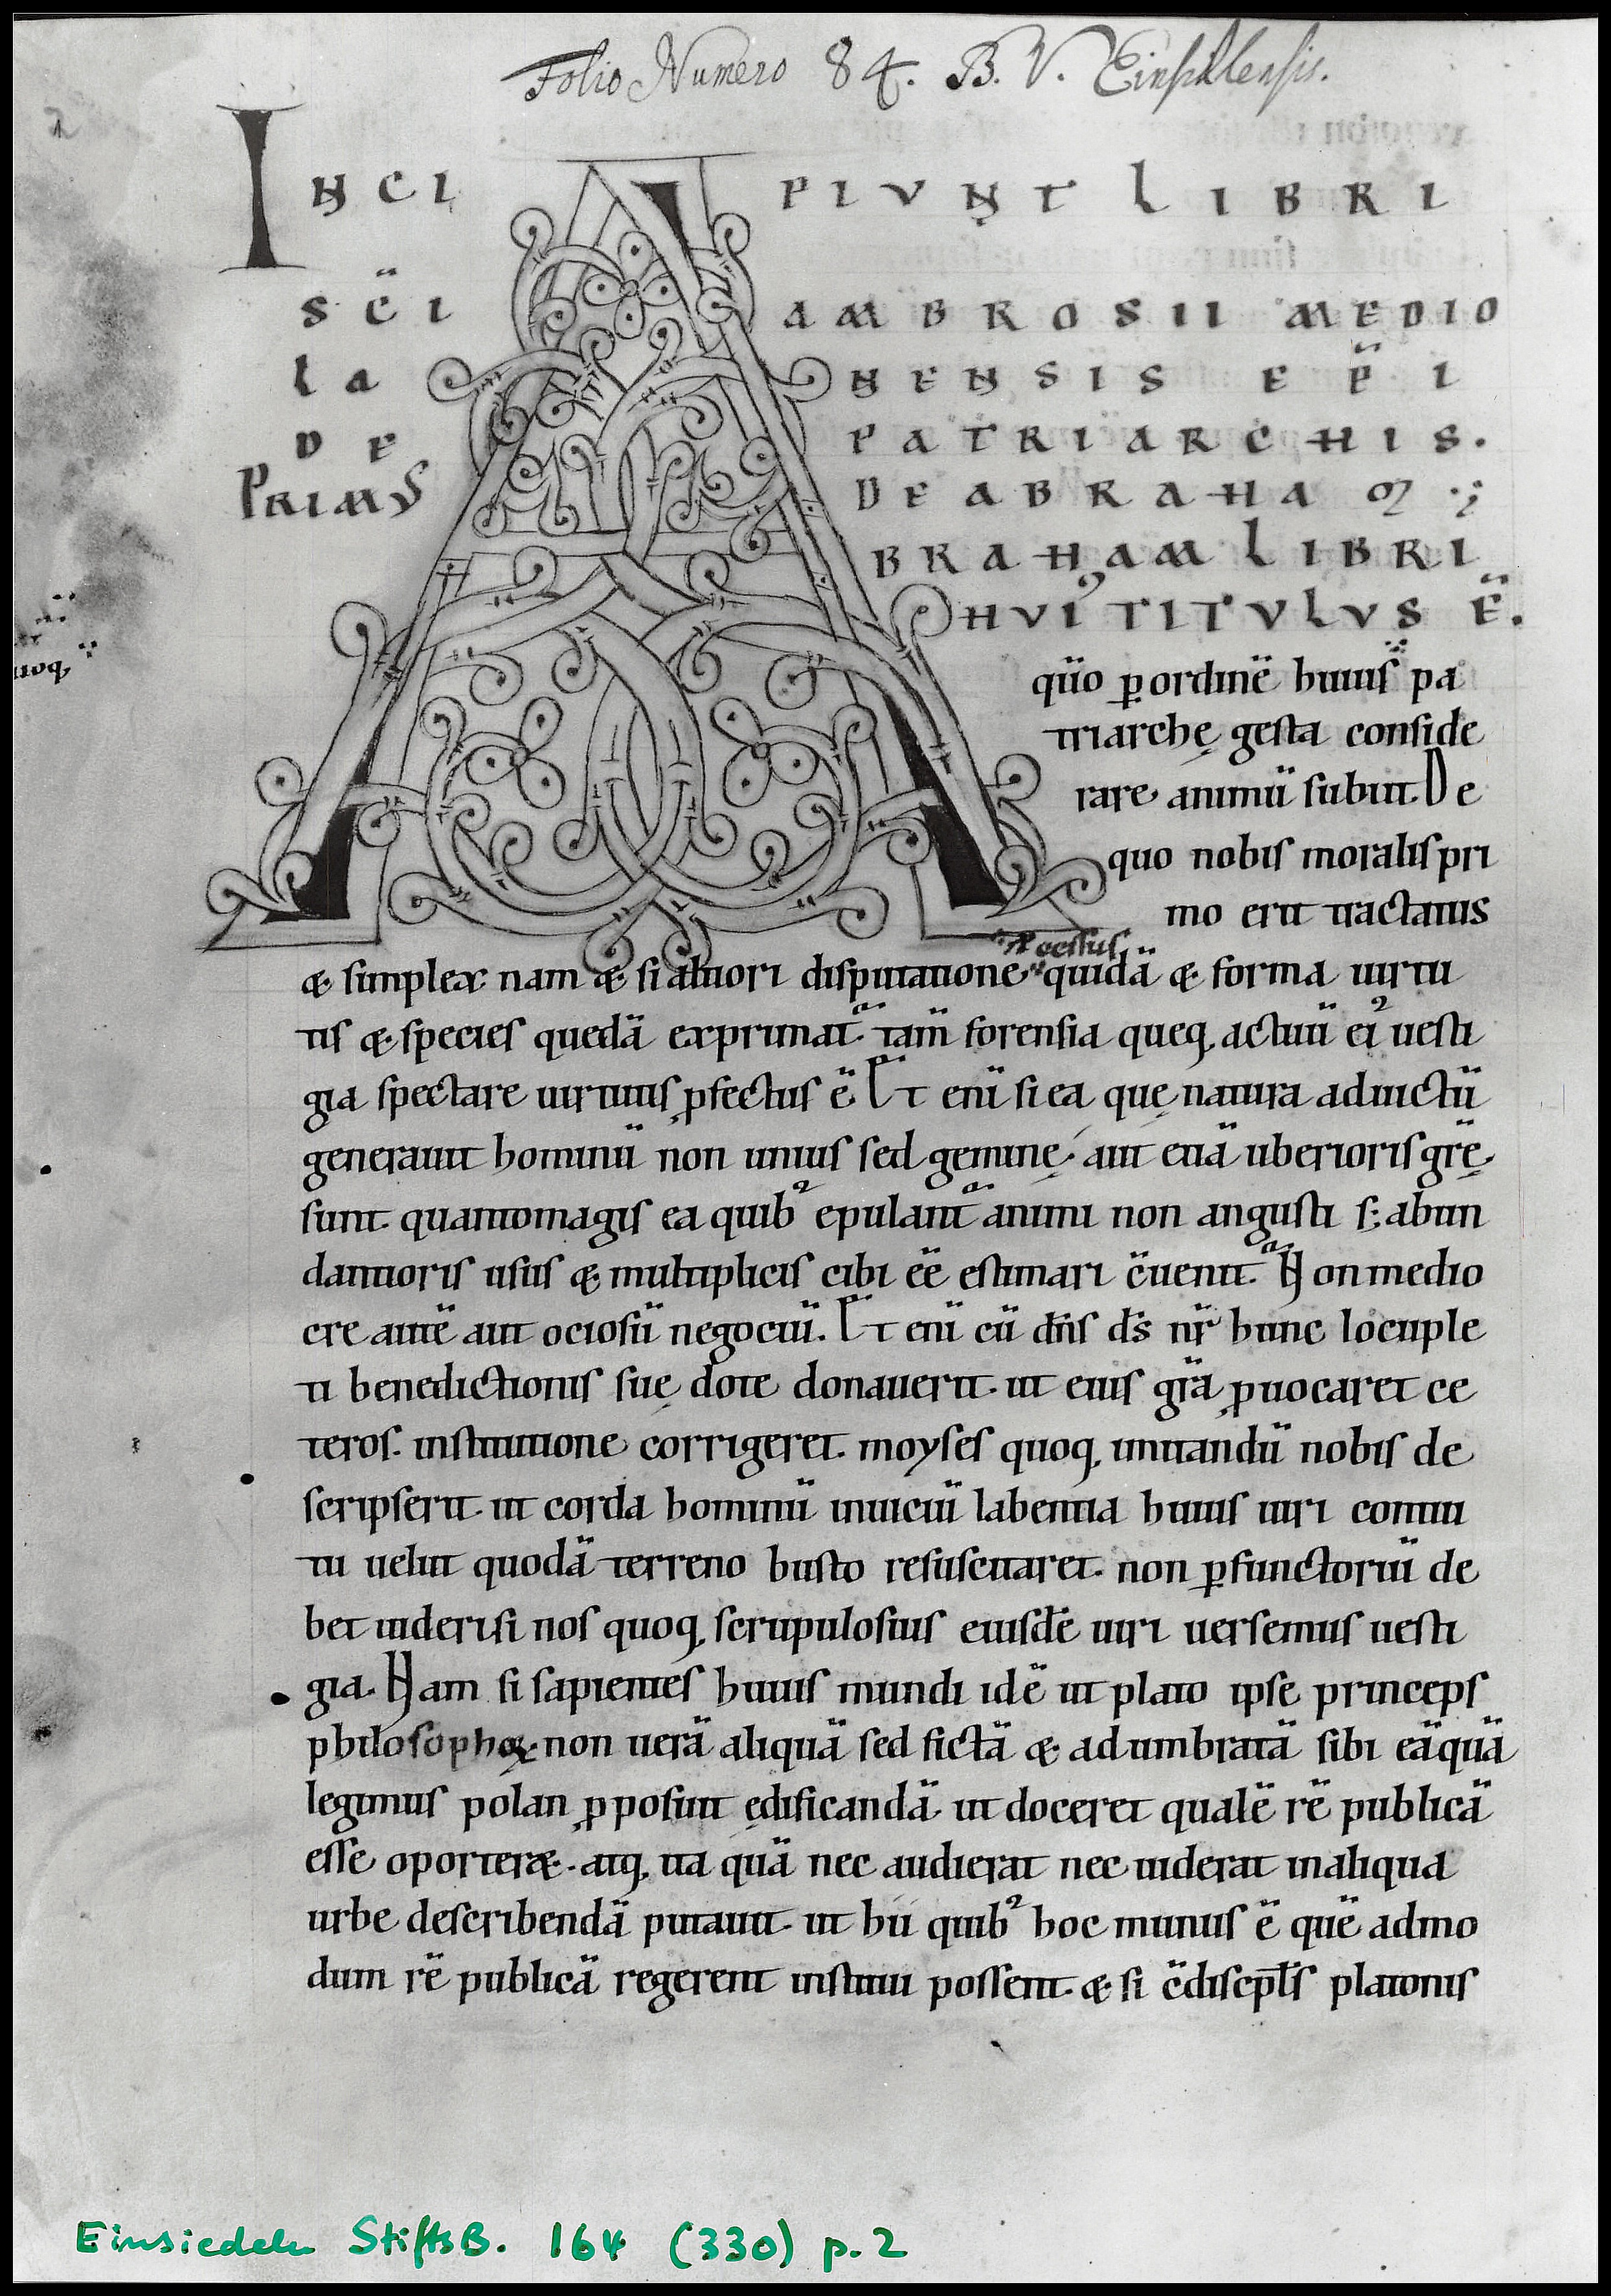 Folio Numero 84. B. V. Einsidlensis.
INCIPIUNT LIBRI
SC̄I AMBROSII MEDIO
LANENSIS EP̄I
DE PATRIARCHIS.
PRIMUS DE ABRAHAM
ABRAHAM LIBRI
HUI᾽ TITULUS Ē.
quō ꝑ ordinē huius pa
triarchę gesta conside
rare animū subiit. De
quo nobis moralis pri
mo erit tractatus
& simplex nam & si altiori disputatione ꝓcessus quidā & forma uirtu
tis & species quedā exprimat᷑. tam̄ forensia queq; actuū ei᾽ uesti
gia spectare uirtutis ꝓfectus ē. Et eni͞ si ea que natura ad uictū
generauit hominū non unius sed geminę. aut etiā uberioris gr̄ę
sunt. quantomagis ea quib᾽ epulant᷑ animi non angusti s; abun
dantioris usus & multiplicis cibi ēē estimari c̄uenit. Non medio
cre autē aut ociosū negociū. Et eni͞ cū dn̄s ds̄ nr̄ hunc locuple
ti benedictionis suę dote donauerit. ut eius gr̄ā ꝓuocaret ce
teros. institutione corrigeret. moyses quoq; imitandū nobis de
scripserit. ut corda hominū in uiciū labentia huius uiri contui
tu uelut quodā terreno busto resuscitaret. non ꝑfunctoriū de
bet uideri si nos quoq; scrupulosius eiusdē uiri uersemus uesti
gia. Nam si sapientes huius mundi idē ut plato ipse princeps
philosophoꝝ non uerā aliquā sed fictā & adumbratā sibi eā quā
legimus polan ꝓposuit ędificandā. ut doceret qualē rē publicā
esse oporter&. atq; ita quā nec audierat nec uiderat in aliqua
urbe describendā putauit. ut hii quib᾽ hoc munus ē quē admo
dum rē publicā regerent institui possent. & si c̄discipl̄s platonis
Einsiedeln StiftsB. 164 (330) p. 2